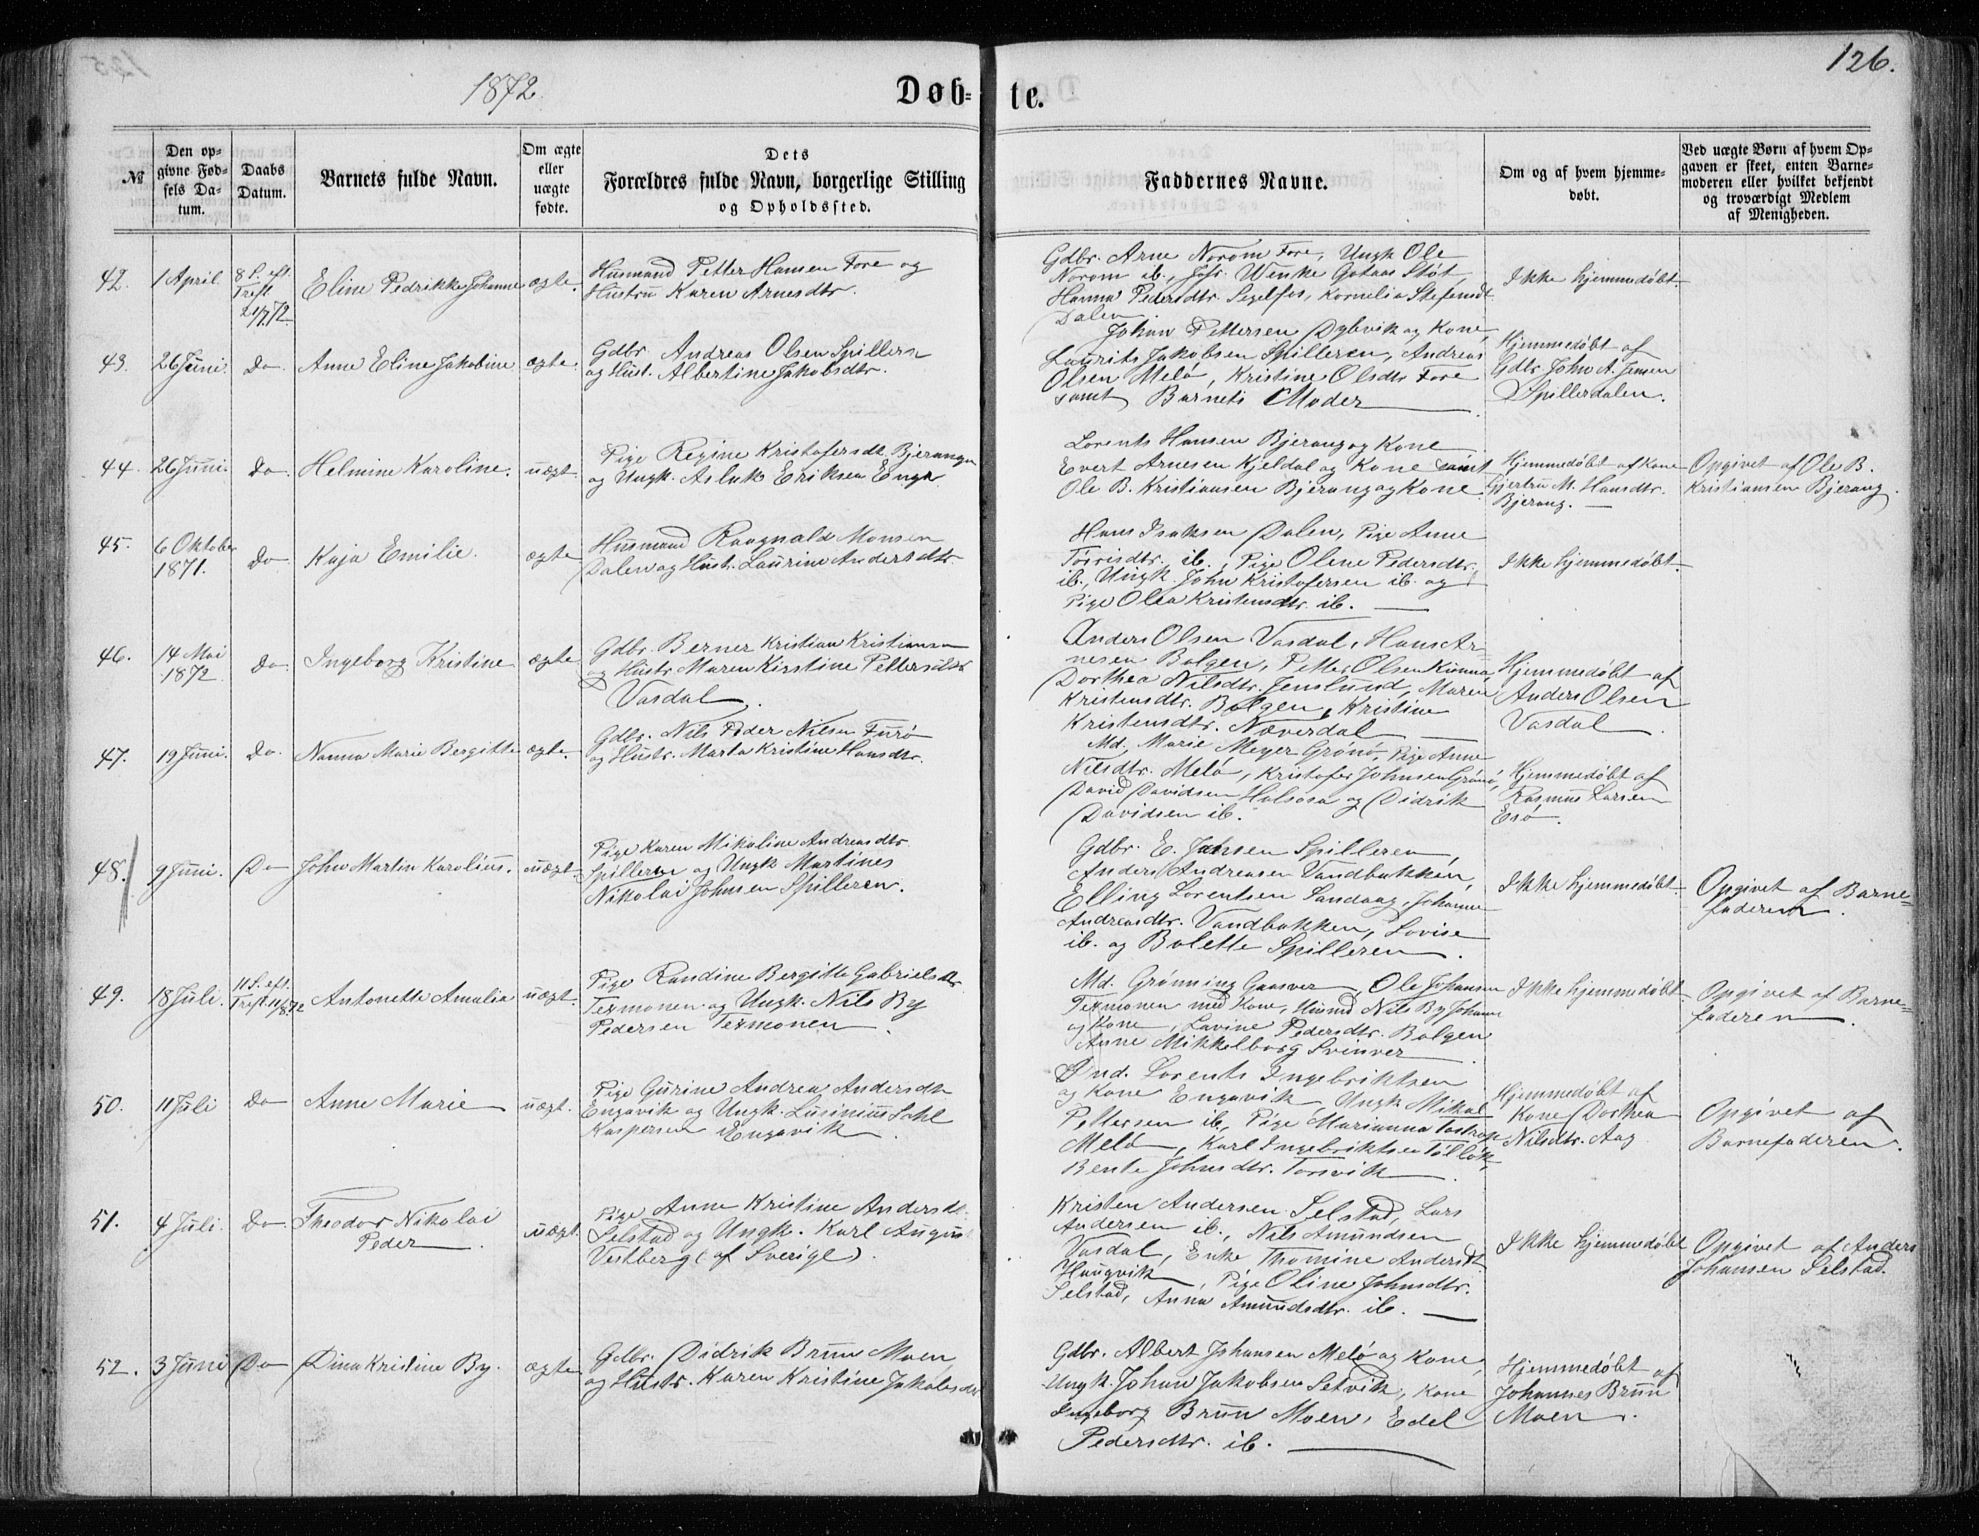 126.
1872.
Døb-te.
№
Den op-
givne Fød-
sels Da-
tum.
Daabs
Datum.
Barnets fulde Navn.
Om ægte
eller
uægte
fødte.
Dets
Forældres fulde Navn, borgerlige Stilling
og Opholdssted.
Faddernes Navne.
Om og af hvem hjemme-
døbt.
Ved uægte Børn af hvem Op-
gaven er skeet, enten Barne-
moderen eller hvilket bekjendt
og troværdigt Medlem
af Menigheden.
42.
1 April
8 S. eft.
Treft
21/7 72.
Eline Pedrikke Johanne
ægte.
Husmand Petter Hansen Fore og
Hustru Karen Arnesdtr.
Gdbr. Arne Norom Fore, Ungk Ole
Norom ib., Jofr. Wenke Gotaas Støt,
Hanna Pedersdtr. Segelfos, Kornelia Stefensdt
Dalen.
Ikke hjemmedøbt.
43.
26 Juni.
Do.
Anne Eline Jakobine
ægte.
Gdbr. Andreas Olsen Spilleren
og Hust. Albertine Jakobsdtr.
Johan Pettersen Dybvik og Kone,
Laurits Jakobsen Spilleren, Andreas
Olsen Melø, Kristine Olsdtr Fore
samt Barnets Moder.
Hjemmedøbt af
Gdbr John A. Jensen
Spillerdalen.
44.
26 Juni.
Do.
Helmine Karoline.
uægt.
Pige Regine Kristofersdt. Bjerangn
og Ungk. Aslak Eriksen Enga
Lorents Hansen Bjerang og Kone
Evert Arnesen Kjeldal og Kone samt
Ole B. Kristiansen Bjerang og Kone.
Hjemmedøbt af Kone
Gjertru M. Hansdtr.
Bjerang.
Opgivet af Ole B.
Kristiansen Bjerang.
45.
6 Oktober
1871.
Do
Kaja Emilie.
ægte
Husmand Raagnald Monsen
Dalen og Hustr. Laurine Andersdtr.
Hans Isaksen Dalen, Pige Anne
Torrisdtr. ib., Pige Olene Pedersdtr.
ib., Ungk. John Kristofersen ib. og
Pige Olea Kristensdtr. ib.
Ikke hjemmedøbt.
46.
14 Mai
1872.
Do.
Ingeborg Kristine
ægte
Gdbr. Berner Kristian Kristiansen
og Hustr Maren Kirstine Pettersdtr
Vasdal.
Anders Olsen Vasdal, Hans Ar-
nesen Bolgen, Petter Olsen Kunna
Dorthea Nilsdtr. Jenslund, Maren
Kristensdtr. Bolgen, Kristine
Kristensdtr. Næverdal
Hjemmedøbt af
Anders Olsen
Vasdal.
47.
19 Juni.
Do.
Nanna Marie Bergitte
ægte.
Gdbr. Nils Peder Nilsen Furø
og Hustr. Marta Kristine Hansdtr.
Md. Marie Meyer Grønø, Pige Anne
Nilsdtr. Melø, Kristofer Johnsen Grønø,
David Davidsen Holsosa og Didrik
Davidsen ib.
Hjemmedøbt af
Rasmus Larsen
Esø.
48.
9 Juni.
Do
John Martin Karolius.
uægt.
Pige Karen Mikaline Andreasdtr
Spilleren og Ungk Martines
Nikolai Johnsen Spilleren.
Gdbr. E. Jansen Spilleren,
Anders Andreasen Vandbakken,
Elling Lorentsen Sandaag, Johanne
Andreasdtr. Vandbakken, Lovise
ib. og Bolette Spilleren.
Ikke hjemmedøbt.
Opgivet af Barne=
faderen.
49.
18 Juli.
11 S. eft.
Trefst 11/8 72
Antonette Amalia
uægt.
Pige Randine Bergitte Gabrielsdtr
Texmonen og Ungk. Nils By
Pedersen Texmonen.
Md. Grønning Gaasvær, Ole Johansen
Texmonen med Kone, Husmd Nils By Johansen
og Kone, Lavine Pedersdtr. Bolgen
Anne Mikkelborg Svinvær
Ikke hjemmedøbt
Opgivet af Barne=
faderen.
50.
11 Juli
Do
Anne Marie
uægt.
Pige Gurine Andrea Andersdtr
Engavik og Ungk. Lusinius Dahl
Kaspersen Engavik.
Ind. Lorents Ingebriktsen
og Kone Engavik, Ungk Mikal
Pettersen ib., Pige Marianna
Melø, Karl Ingebriktsen
Bente Johnsdtr. Torsvik
Hjemmedøbt af
Kone Dorthea
Nilsdtr. Aag
Opgivet af
Barnefaderen.
51.
4 Juli.
Do
Theodor Nikolai
Peder.
uægt.
Pige Anne Kristine Andersdt.
Selstad og Ungk. Karl August
Vestberg (af Sverige).
Kristen Andersen Selstad, Lars
Andersen ib., Nils Amundsen
Vasdal, Enke Thomine Andersdt.
Haugvik, Pige Oline Johnsdtr.
Selstad, Anna Amundsdtr. ib.
Ikke hjemmedøbt
Opgivet af Anders
Johansen Selstad.
52.
3 Juni
Do
Dina Kristine By.
ægte
Gdbr. Didrik Bruun Moen,
og Hustr. Karen Kristine Jakobsdtr
Gdbr. Albert Johansen Melø og Kone,
Ungk. Johan Jakobsen Setvik, Kone
Ingeborg Bruun Moen, Edel
Pedersdtr. ib.
Hjemmedøbt af
Johannes Bruun
Moen.